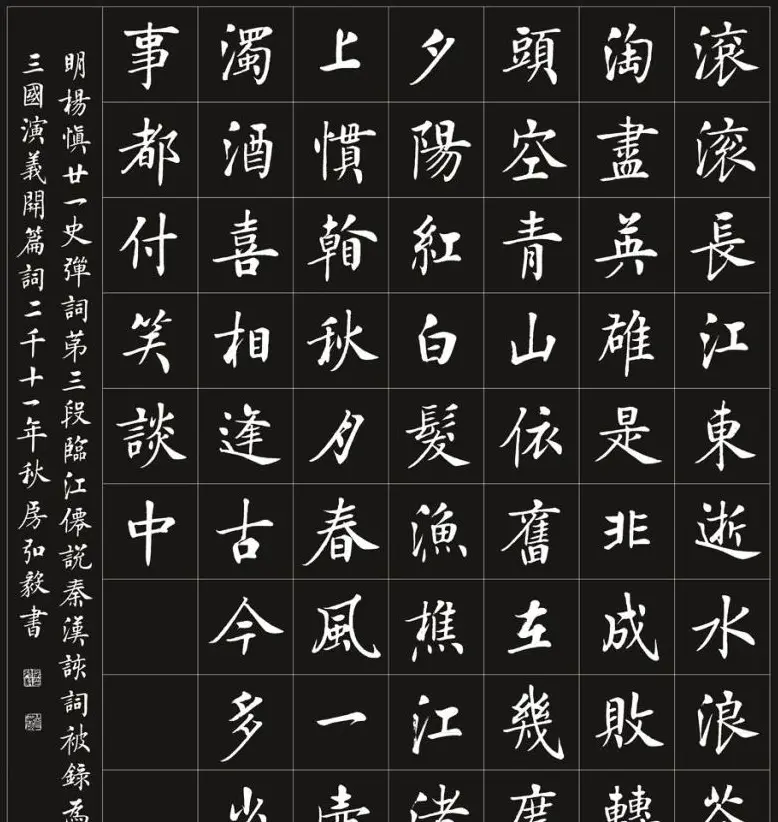 滚滚長江東逝水浪花
淘盡英雄是非成敗轉
頭空青山依舊在幾度
夕陽紅白髮漁樵江渚
上慣看秋月春風一壺
濁酒喜相逢古今多少
事都付笑談中
明楊慎廿一史彈詞第三段臨江僊說秦漢詞被錄為
三國演義開篇詞二千十一年秋房弘毅書